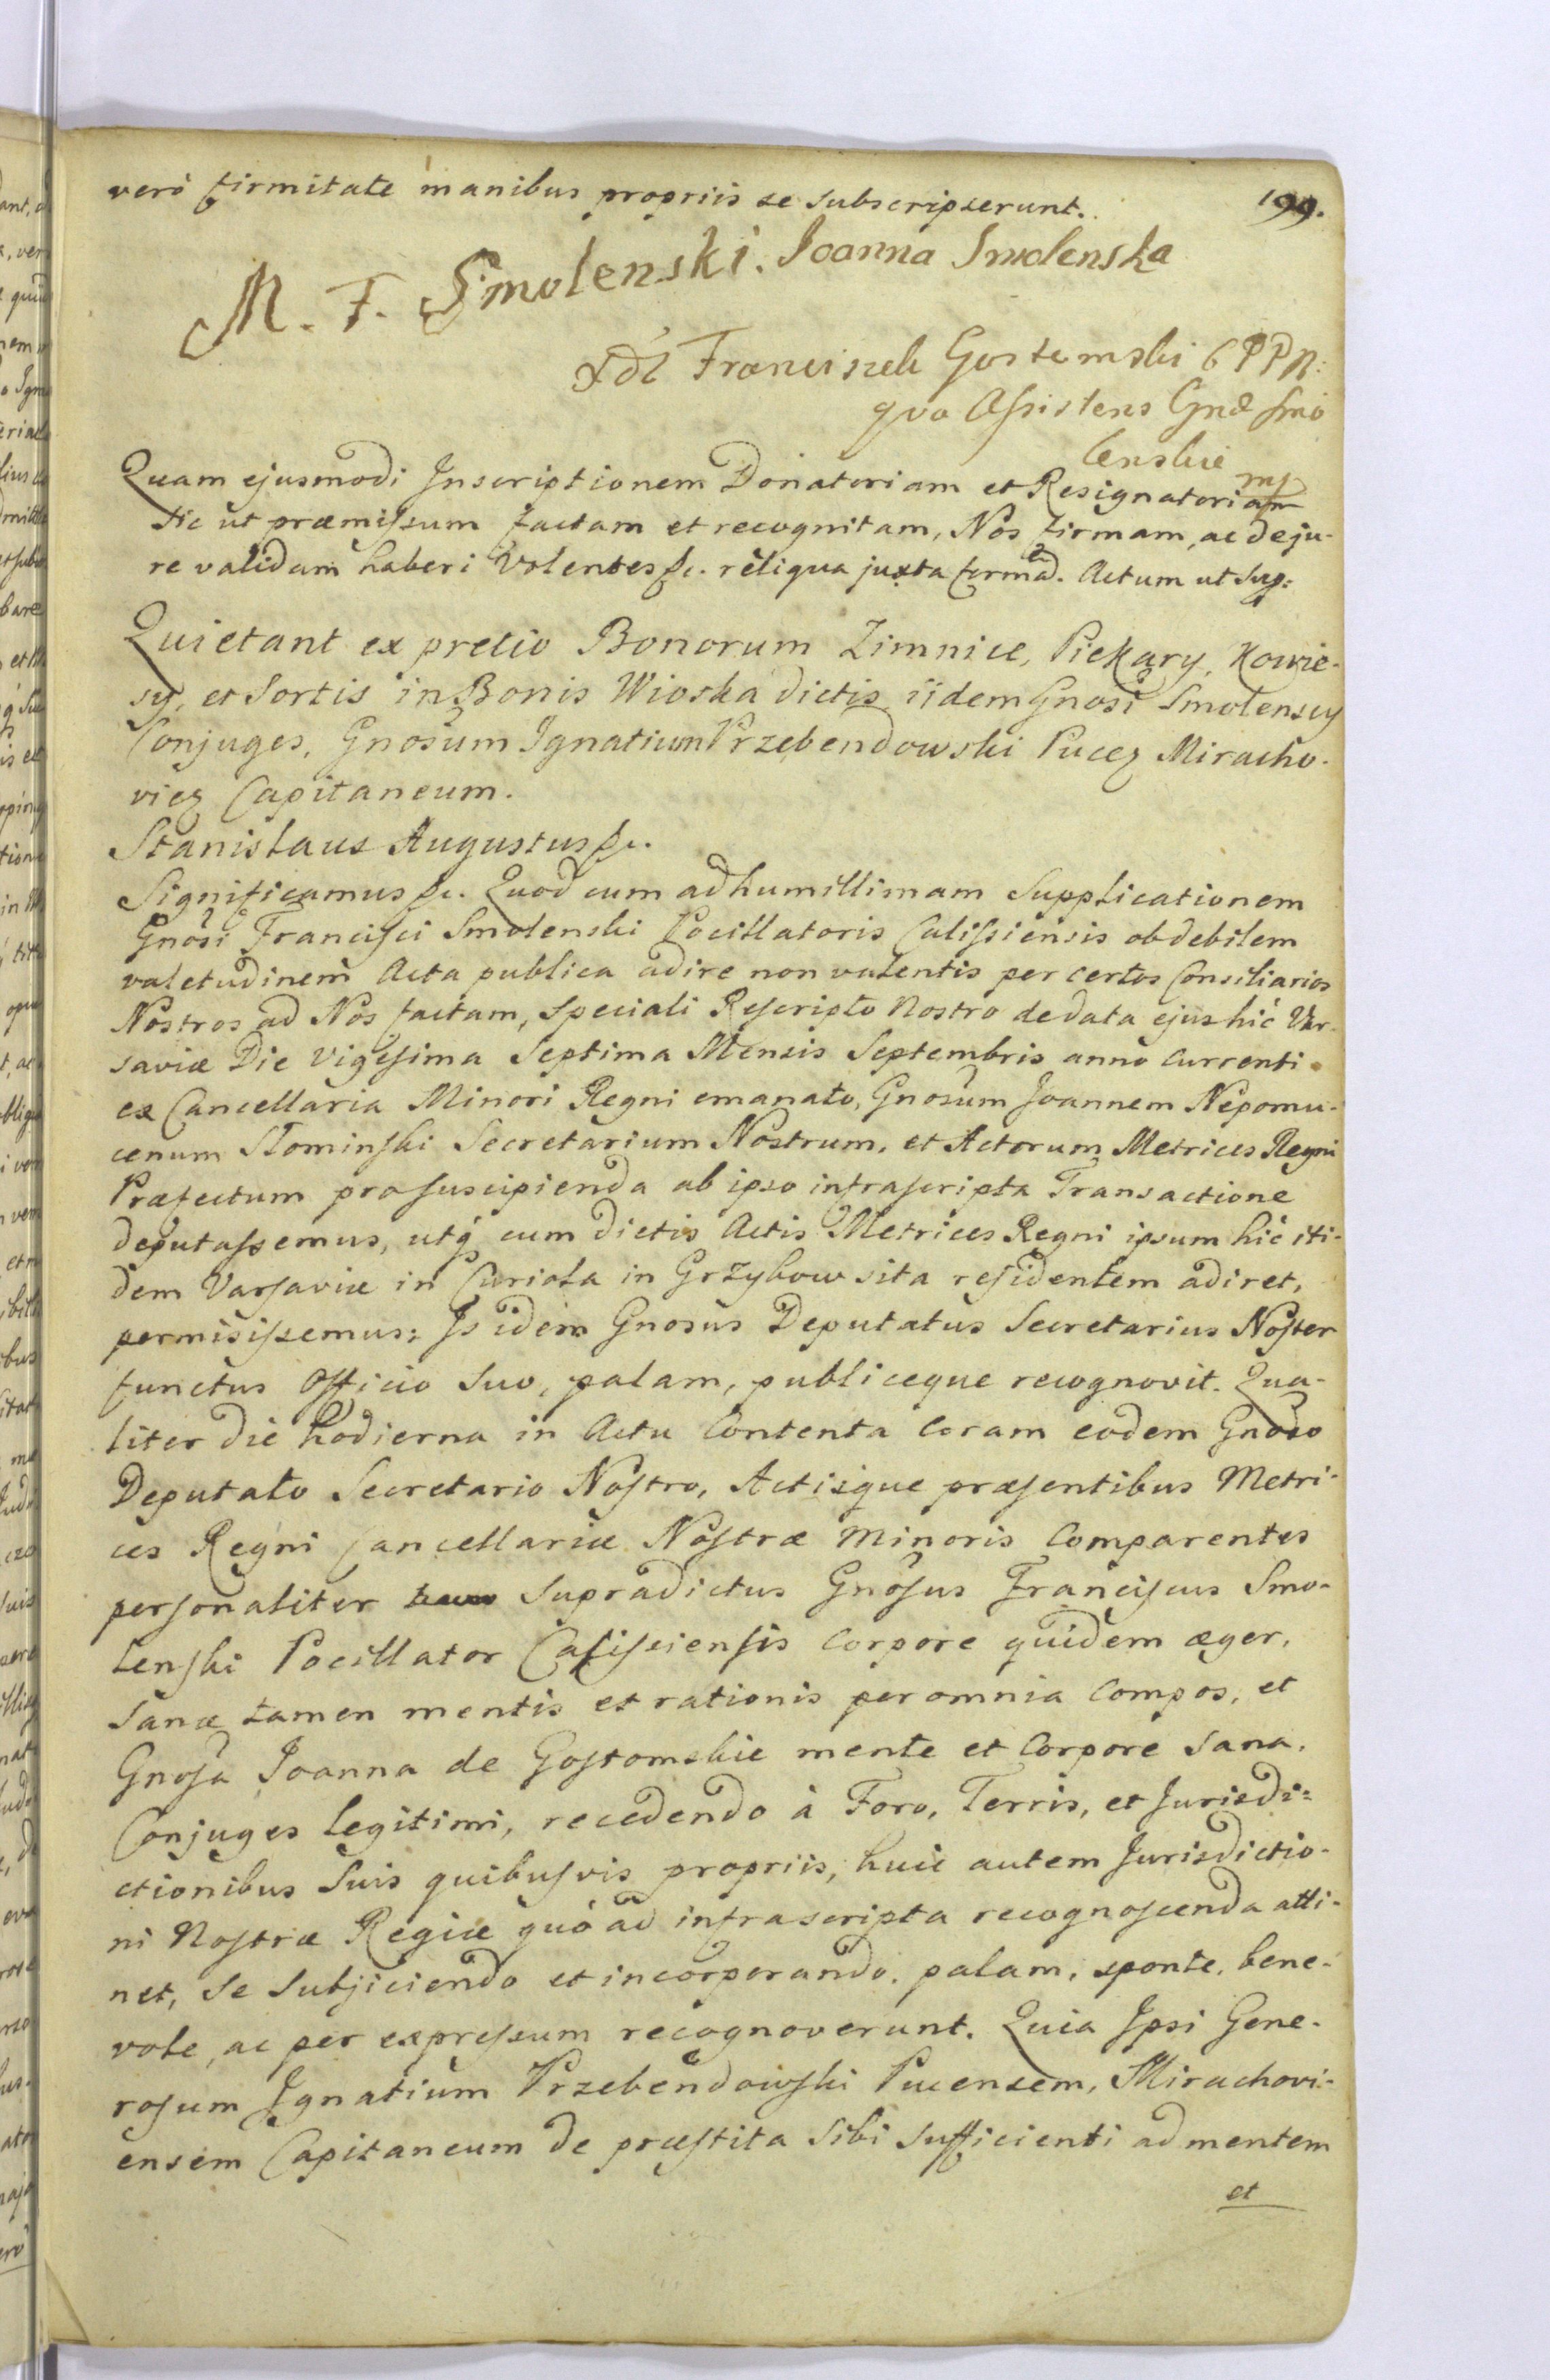 verò firmitate manibus propriis se subscripserunt. 199.
M. F. Smolenski. Joanna Smolenska
Franciszek Gostomski
qva Assistens Gnæ Smo
lenskie mp
Quam ejusmodi Inscriptionem Donatoriam et Resignatoriam
sic ut præmissum factam et recognitam, Nos firmam, ac de ju-
re validam haberi Volentes &c. reliqua juxta formam. Actum ut Sup:
Quietant ex pretio Bonorum Zimnice, Piekary, Kowie-
sy, et Sortis in Bonis Wioska dictis iidem Gnosi Smolenscy
Conjuges, Gnosum Ignatium Przebendowski Pucey Miracho-
viey Capitaneum.
Stanislaus Augustus &c.
Significamus &c. Quod cum ad humillimam Supplicationem
Gnosi Francisci Smolenski Pocillatoris Calissiensis ob debilem
valetudinem Acta publica adire non valentis per certos Consiliarios
Nostros ad Nos factam, Speciali Rescripto Nostro de data ejus hic Var-
saviæ Die Vigesima Septima Mensis Septembris anno Currenti
ex Cancellaria Minori Regni emanato, Gnosum Joannem Nepomu-
cenum Słominski Secretarium Nostrum, et Actorum Metrices Regni
Præfectum pro suscipienda ab ipso infrascripta Transactione
deputassemus, utq; cum dictis Actis Metrices Regni ipsum hic iti-
dem Varsaviæ in Curiola in Grzybow sita residentem adiret,
permisissemus; Is idem Gnosus Deputatus Secretarius Noster
functus Officio Suo, palam, publiceque recognovit. Qua-
liter die hodierna in Actu Contenta Coram eodem Gnoso
Deputato Secretario Nostro, Actisque præsentibus Metri-
ces Regni Cancellariæ Nostræ Minoris Comparentes
personaliter Supradictus Gnosus Franciscus Smo-
lenski Pocillator Calissiensis Corpore quidem æger,
Sanæ tamen mentis et rationis per omnia Compos, et
Gnosa Joanna de Gostomskie mente et Corpore Sana.
Conjuges legitimi, recedendo à Foro, Terris, et Jurisdi-
ctionibus Suis quibusvis propriis, huic autem Jurisdictio-
ni Nostræ Regiæ quò ad infrascripta recognoscenda atti-
net, Se Subjiciendo et incorporando, palam, sponte, bene-
vole, ac per expressum recognoverunt. Quia Ipsi Gene-
rosum Ignatium Przebendowski Pucensem, Mirachovi-
ensem Capitaneum de præstita Sibi Sufficienti ad mentem
et